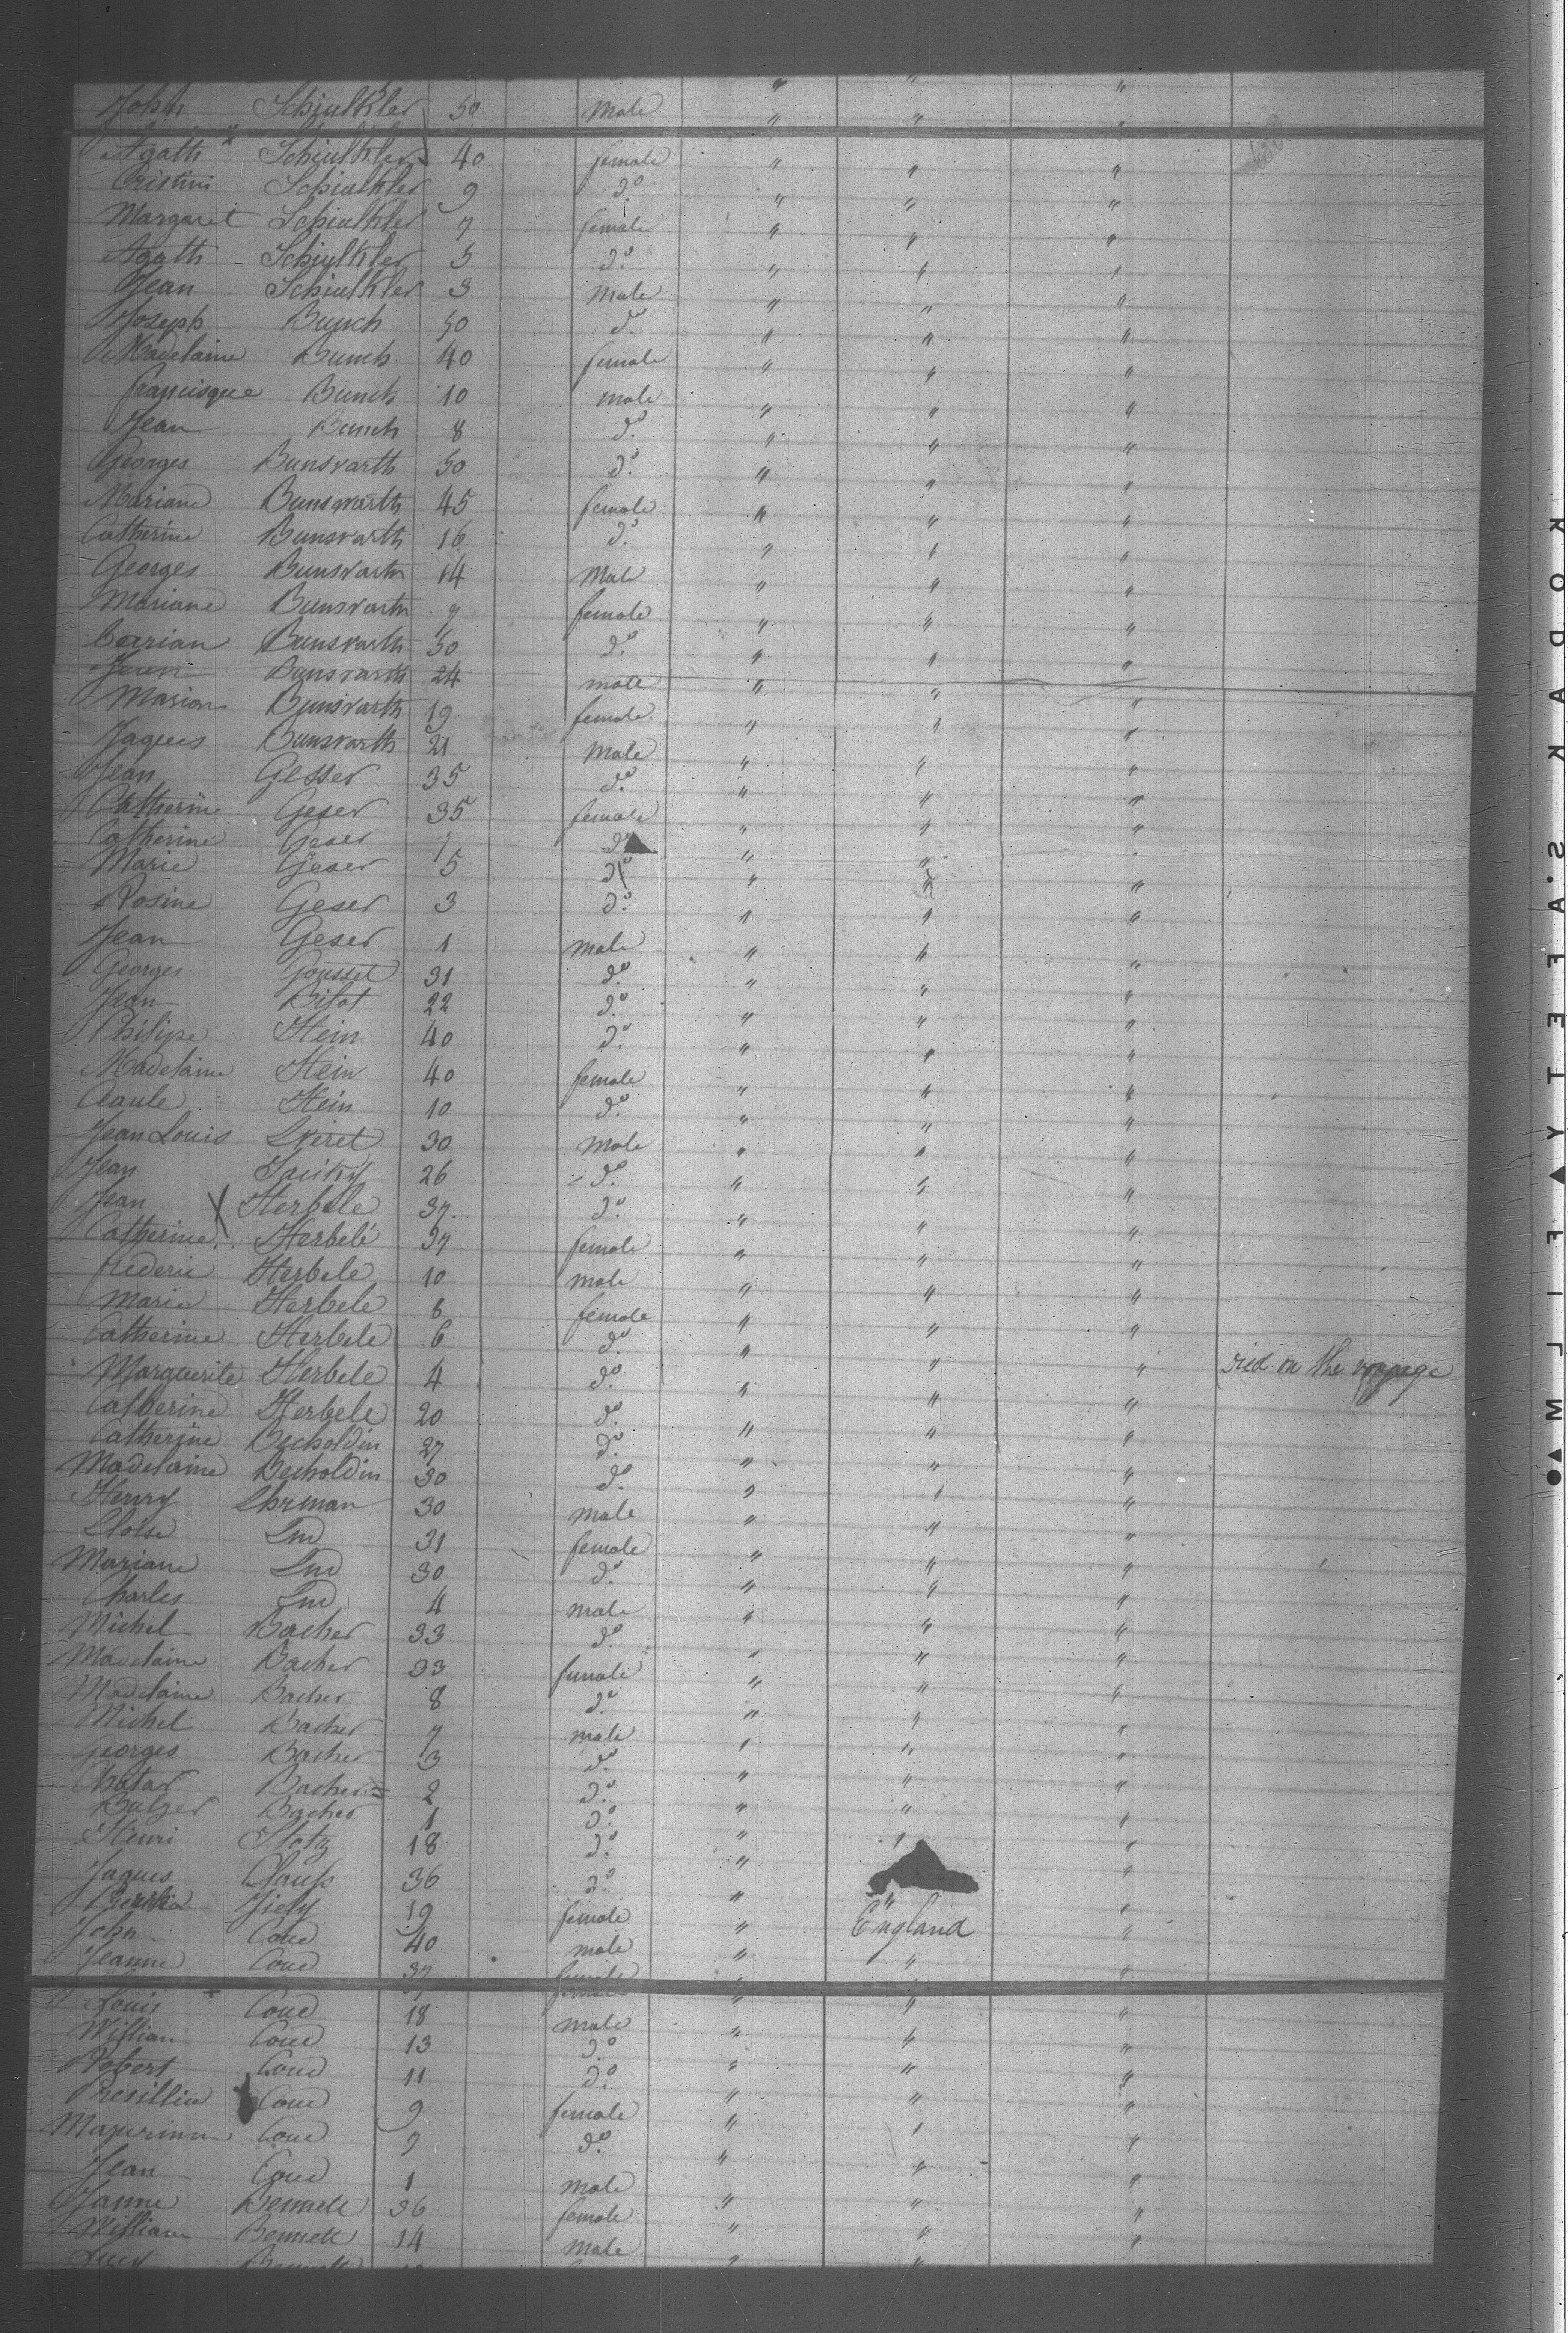 John Schiulkler 50 Male " " "
Agath Schiulkler 40 female " " "
Cristini Schiulkler 9 do " " "
Margaret Schiulkler 7 female " " "
Agath Schiulkler 5 do " " "
Jean Schiulkler 3 Male " " "
Joseph Bunch 50 do " " "
Madelaine Bunch 40 female " " "
francisque Bunch 10 male " " "
Jean Bunch 8 do " " "
Georges Bunsvarth 50 do " " "
Mariane Bunsvarth 45 female " " "
Catherine Bunsvarth 16 do " " "
Georges Bunsvarth 14 Male " " "
Mariane Bunsvarth 7 female " " "
Bunsvarth 50 do " " "
Jean Bunsvarth 24 male " " "
Marion Bunsvarth 19 female " " "
Jaques Bunsvarth 21 Male " " "
Jean Gesser 35 do " " "
Catherine Geser 35 female " " "
Catherine Geser 7 do " " "
Marie Geser 5 do " " "
Rosine Geser 3 do " " "
Jean Geser 1 male " " "
Georges Gousset 31 do " " "
Jean Bilot 22 do " " "
Philipe Stein 40 do " " "
Madelaine Stein 40 female " " "
Stein 10 do " " "
Jean Louis 30 Male " " "
Jean 26 do " " "
Jean Herbele 37 do " " "
Catherine Herbelé 37 female " " "
frederic Herbele 10 male " " "
Marie Herbele 8 female " " "
Catherine Herbele 6 do " " "
Marguerite Herbele 4 do " " " died on the voyage
Catherine Herbele 20 do " " "
Catherine Becholdin 27 do " " "
Madelaine Becholdin 30 do " " "
Henry Ehrman 30 male " " "
31 female " " "
Mariane 30 do " " "
Charles 4 male " " "
Michel Bacher 33 do " " "
Madelaine Bacher 33 female " " "
Madelaine Bacher 8 do " " "
Michel Bacher 7 male " " "
Georges Bacher 3 do " " "
Bacher 2 do " " "
Bacher 1 do " " "
Henri Stotz 18 do " " "
Jaques Clauss 36 do " " "
19 female " England "
John Coue 40 male " " "
Jeanne Coue 37 female " " "
Louis Coue 18 male " " "
William Coue 13 do " " "
Robert Coue 11 do " " "
Presillia Coue 9 female " " "
Coue 7 do " " "
Jean Coue 1 male " " "
Janne Bennett 36 female " " "
William Bennett 14 male " " "
Bennett
KODAK S.AFETY FILM